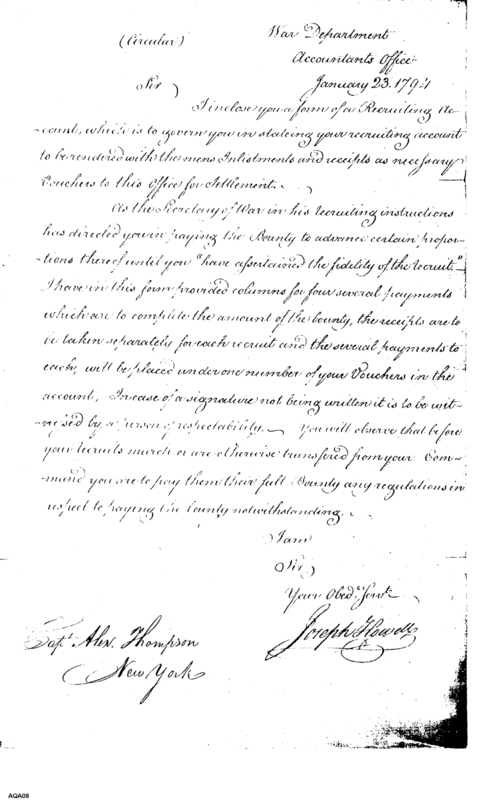 (Circular)
War Department
Accountants Office
January 23. 1794
Sir
I inclose you a form of a Recruiting Ac-
-count, which is to govern you in stateing your recruiting account
to be rendered with the mens Inlistments and receipts as necessary
Vouchers to this Office for Settlement.
As the Secretary of War in his recruiting instructions
has directed you in paying the Bounty to advance certain propor-
-tions thereof until you "have assertained the fidelity of the recruit."
I have in this form provided columns for four several payments
which are to complete the amount of the bounty, the receipts are to
be taken separately for each recruit and the several payments to
each, will be placed under one number of your Vouchers in the
account, In case of a signature not being written it is to be wit-
-nessed by a person of respectability. You will observe that before
your recruits march or are otherwise transfered from your Com-
-mand you are to pay them their full Bounty any regulations in
respect to paying the bounty notwithstanding.
I am
Sir
Your Obedt. Servt.
Joseph Howell
Capt. Alex. Thompson
New York
AQA08